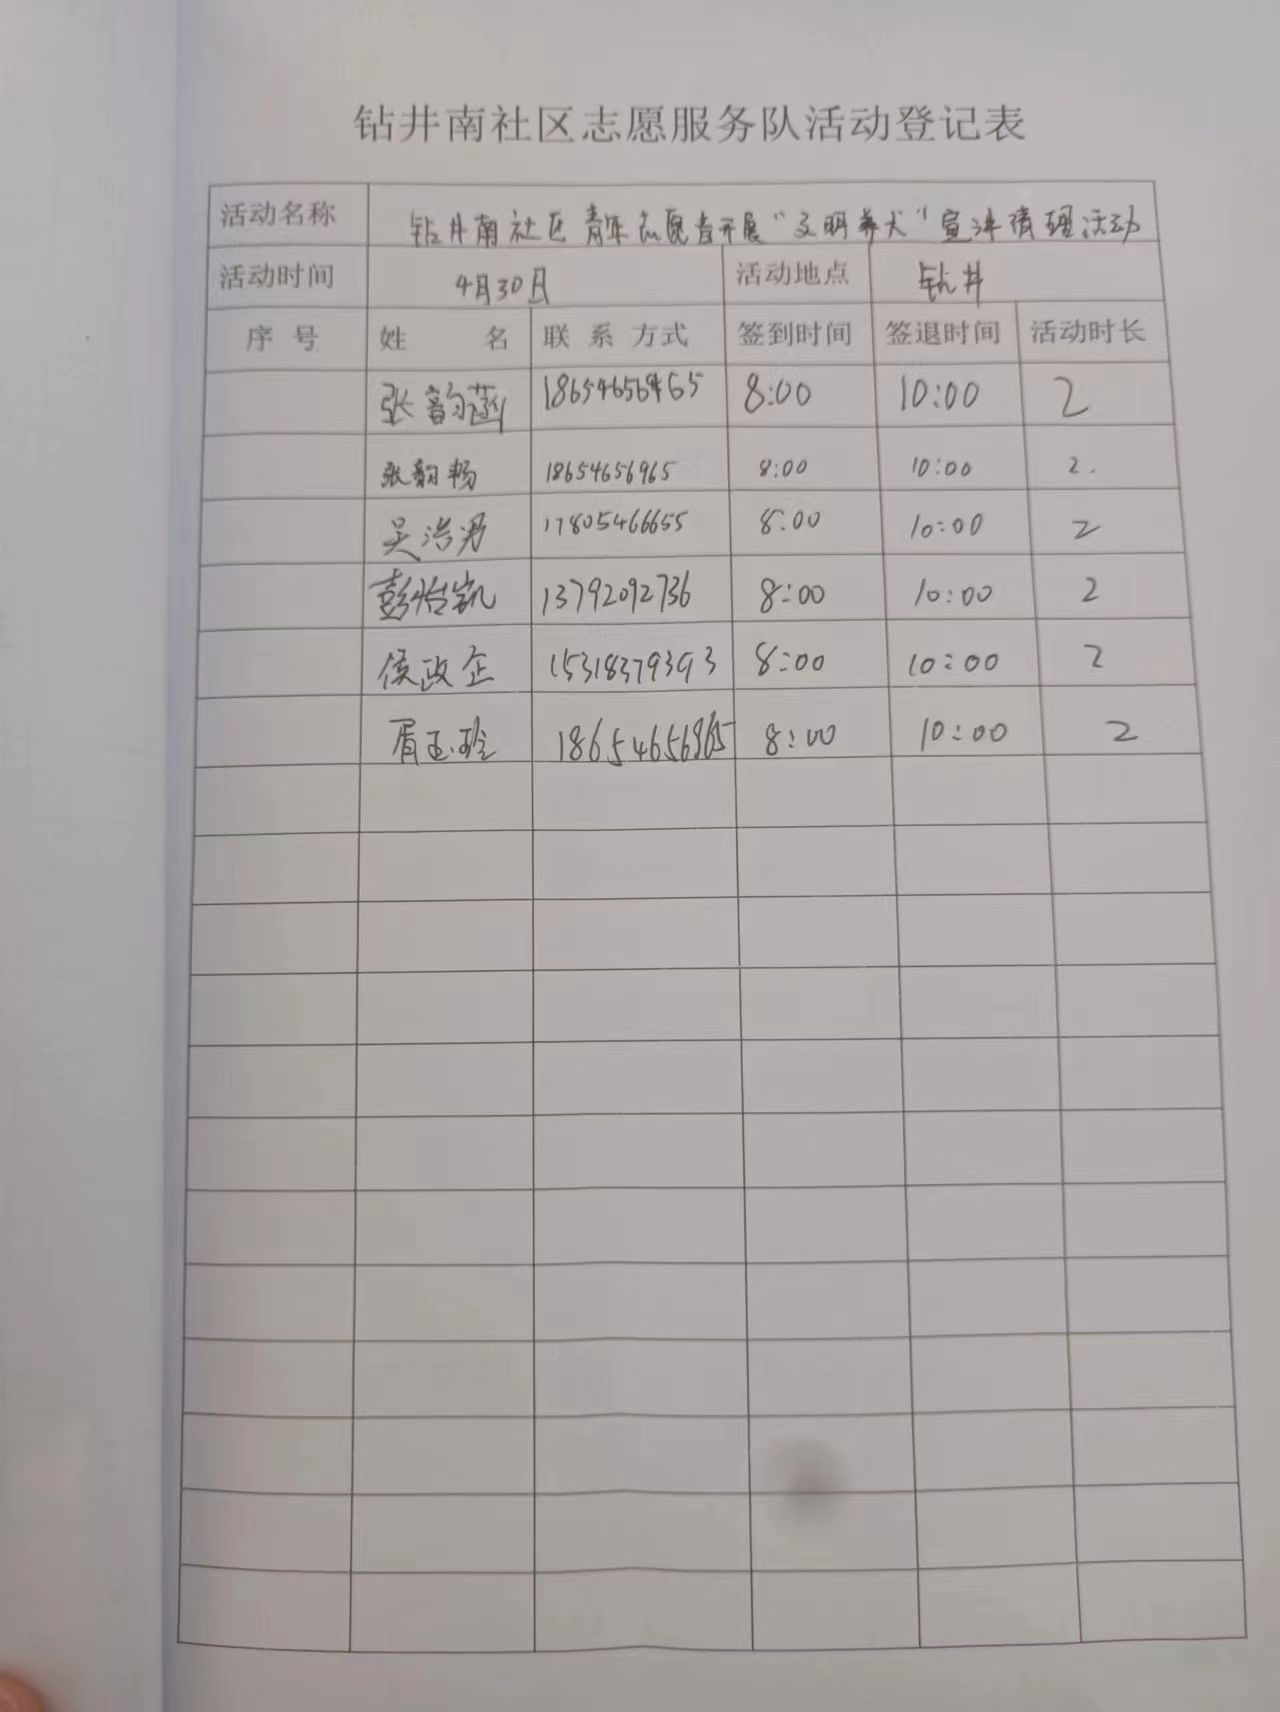 钻井南社区志愿服务队活动登记表
活动名称 钻井南社区青年志愿者开展“文明养犬”宣讲清理活动
活动时间 4月30日 活动地点 钻井
序号 姓名 联系方式 签到时间 签退时间 活动时长
张韵菡 8:00 10:00 2
张韵畅 18654656965 8:00 10:00 2.
吴浩 17805466655 8:00 10:00 2
彭怡凯 13792092736 8:00 10:00 2
侯政企 15318379393 8:00 10:00 2
胥玉玲 18654656965 8:00 10:00 2